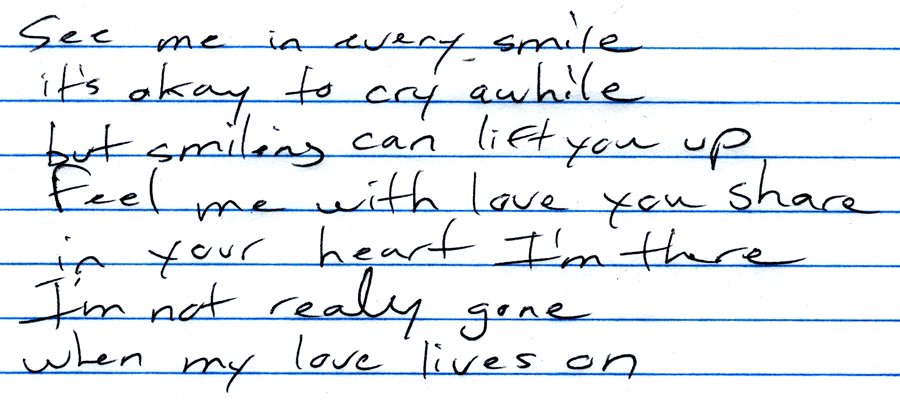 See me in every smile
it's okay to cry awhile
but smiling can lift you up
Feel me with love you share
in your heart I'm there
I'm not realy gone
when my love lives on